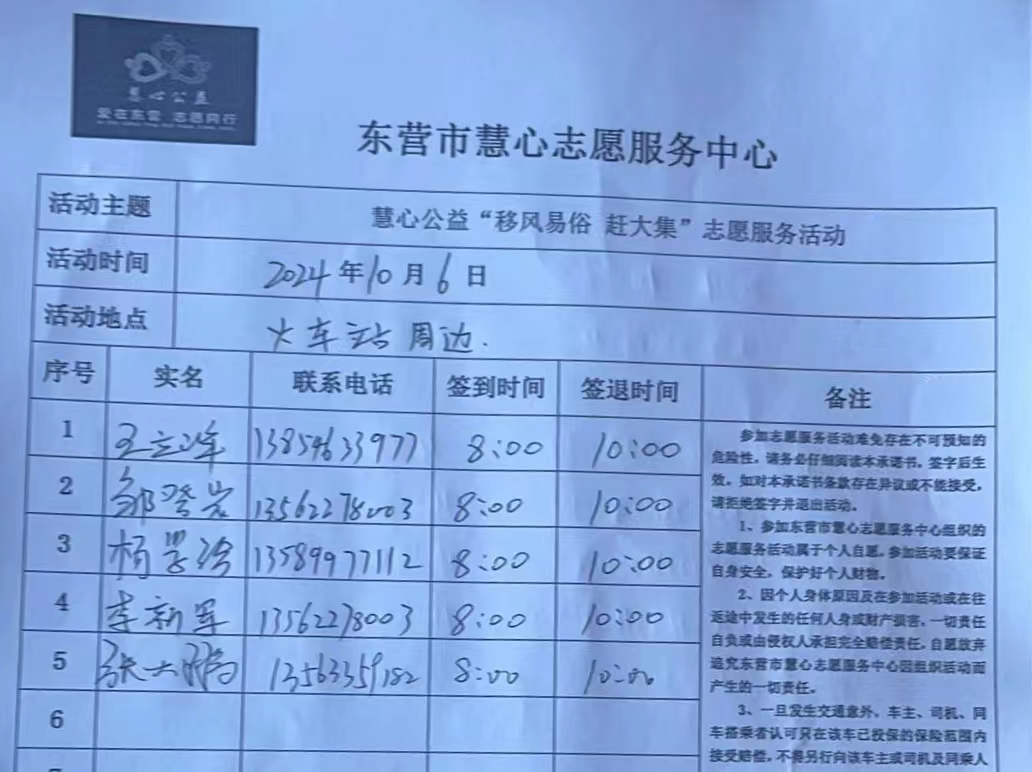 慧心公益
爱在东营 志愿同行
东营市慧心志愿服务中心
活动主题 慧心公益“移风易俗 赶大集”志愿服务活动
活动时间 2024年10月6日
活动地点 火车站周边.
序号 实名 联系电话 签到时间 签退时间 备注
1 王立军 13854633977 8:00 10:00
2 邹登岩 13562278003 8:00 10:00
3 杨学 13589977112 8:00 10:00
4 李新军 13562278003 8:00 10:00
5 张大鹏 13563359182 8:00 10:00
6
参加志愿服务活动难免存在不可预知的
危险性,请务必仔细阅读本承诺书。签字后生
效。如对本承诺书条款存在异议或不能接受,
请拒绝签字并退出活动。
1、参加东营市慧心志愿服务中心组织的
志愿服务活动属于个人自愿。参加活动要保证
自身安全,保护好个人财物。
2、因个人身体原因及在参加活动或在往
返途中发生的任何人身或财产损害,一切责任
自负或由侵权人承担完全赔偿责任,自愿放弃
追究东营市慧心志愿服务中心因组织活动而
产生的一切责任。
3、一旦发生交通意外,车主、司机、同
车搭乘者认可只在该车已投保的保险范围内
接受赔偿,不得另行向该车主或司机及同乘人